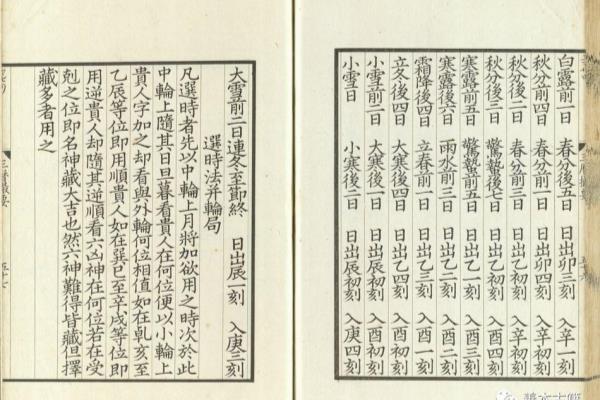 白露前一日 春分後五日 日出卯三刻 入辛一刻
秋分前一日 春分後一日 日出卯四刻 入辛初刻
秋分後二日 春分前一日 日出乙初刻 入辛初刻
秋分後三日 驚蟄後七日 日出乙初刻 入酉四刻
寒露前五日 驚蟄前五日 日出乙一刻 入酉三刻
寒露後六日 雨水前三日 日出乙二刻 入酉二刻
霜降後四日 立春前一日 日出乙三刻 入酉一刻
立冬後四日 大寒後四日 日出乙四刻 入酉初刻
小雪前二日 大寒後一日 日出辰初刻 入酉初刻
小雪日 小寒後二日 日出辰初刻 入庚四刻
大雪前二日連冬至節終 日出辰一刻 入庚三刻
選時法并輪局
凡選時者先以中輪上月將加欲用之時次於此
中輪上隨其日旦暮看貴人在何位便以小輪上
貴人字加之却看與外輪何位相值如在乹亥至
乙辰等位即用順貴人如在巽巳至辛戌等位即
用逆貴人却隨其逆順看六凶神在何位若在受
剋之位即名神藏大吉也然六神難得皆藏但擇
藏多者用之